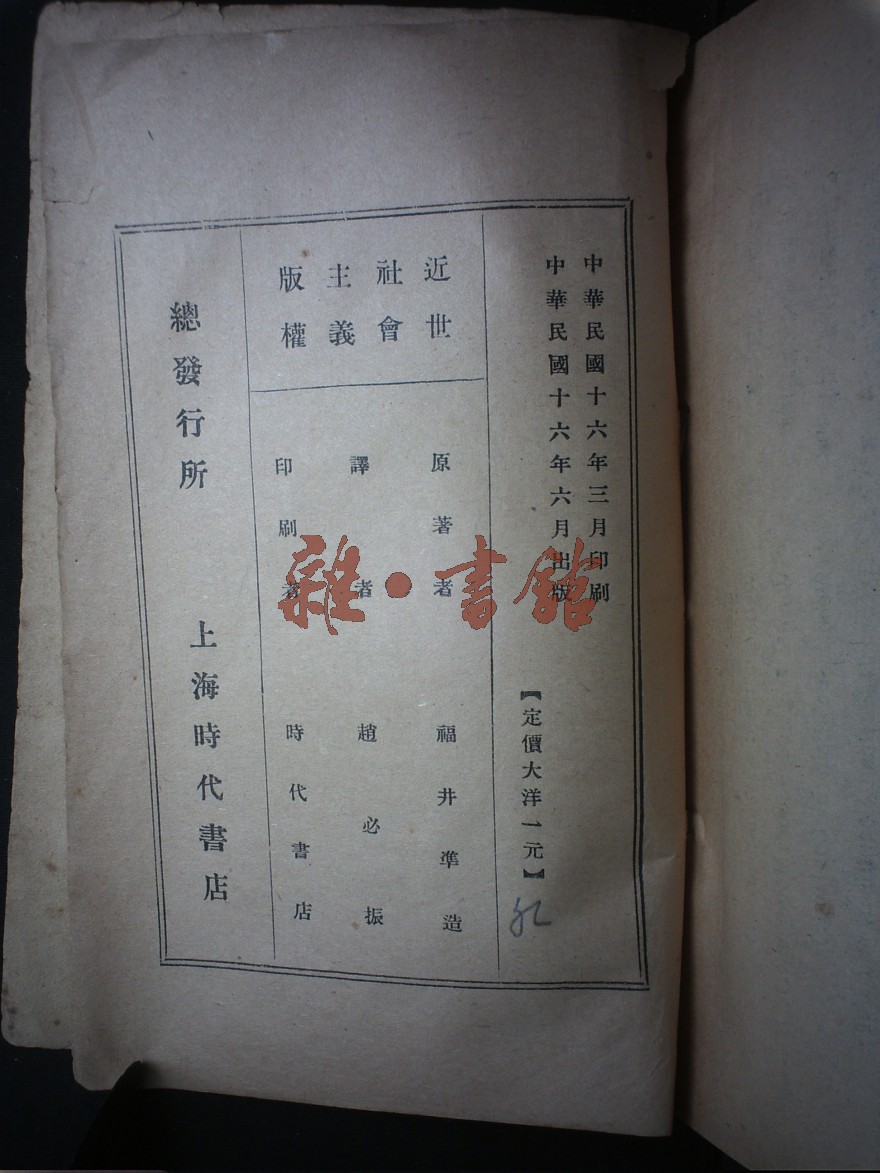 中華民國十六年三月印刷
中華民國十六年六月出版
【定價大洋一元】
近世
社會
主義
版權
原著者 福井準造
譯者 趙必振
印刷者 時代書店
總發行所 上海時代書店
雜·書館